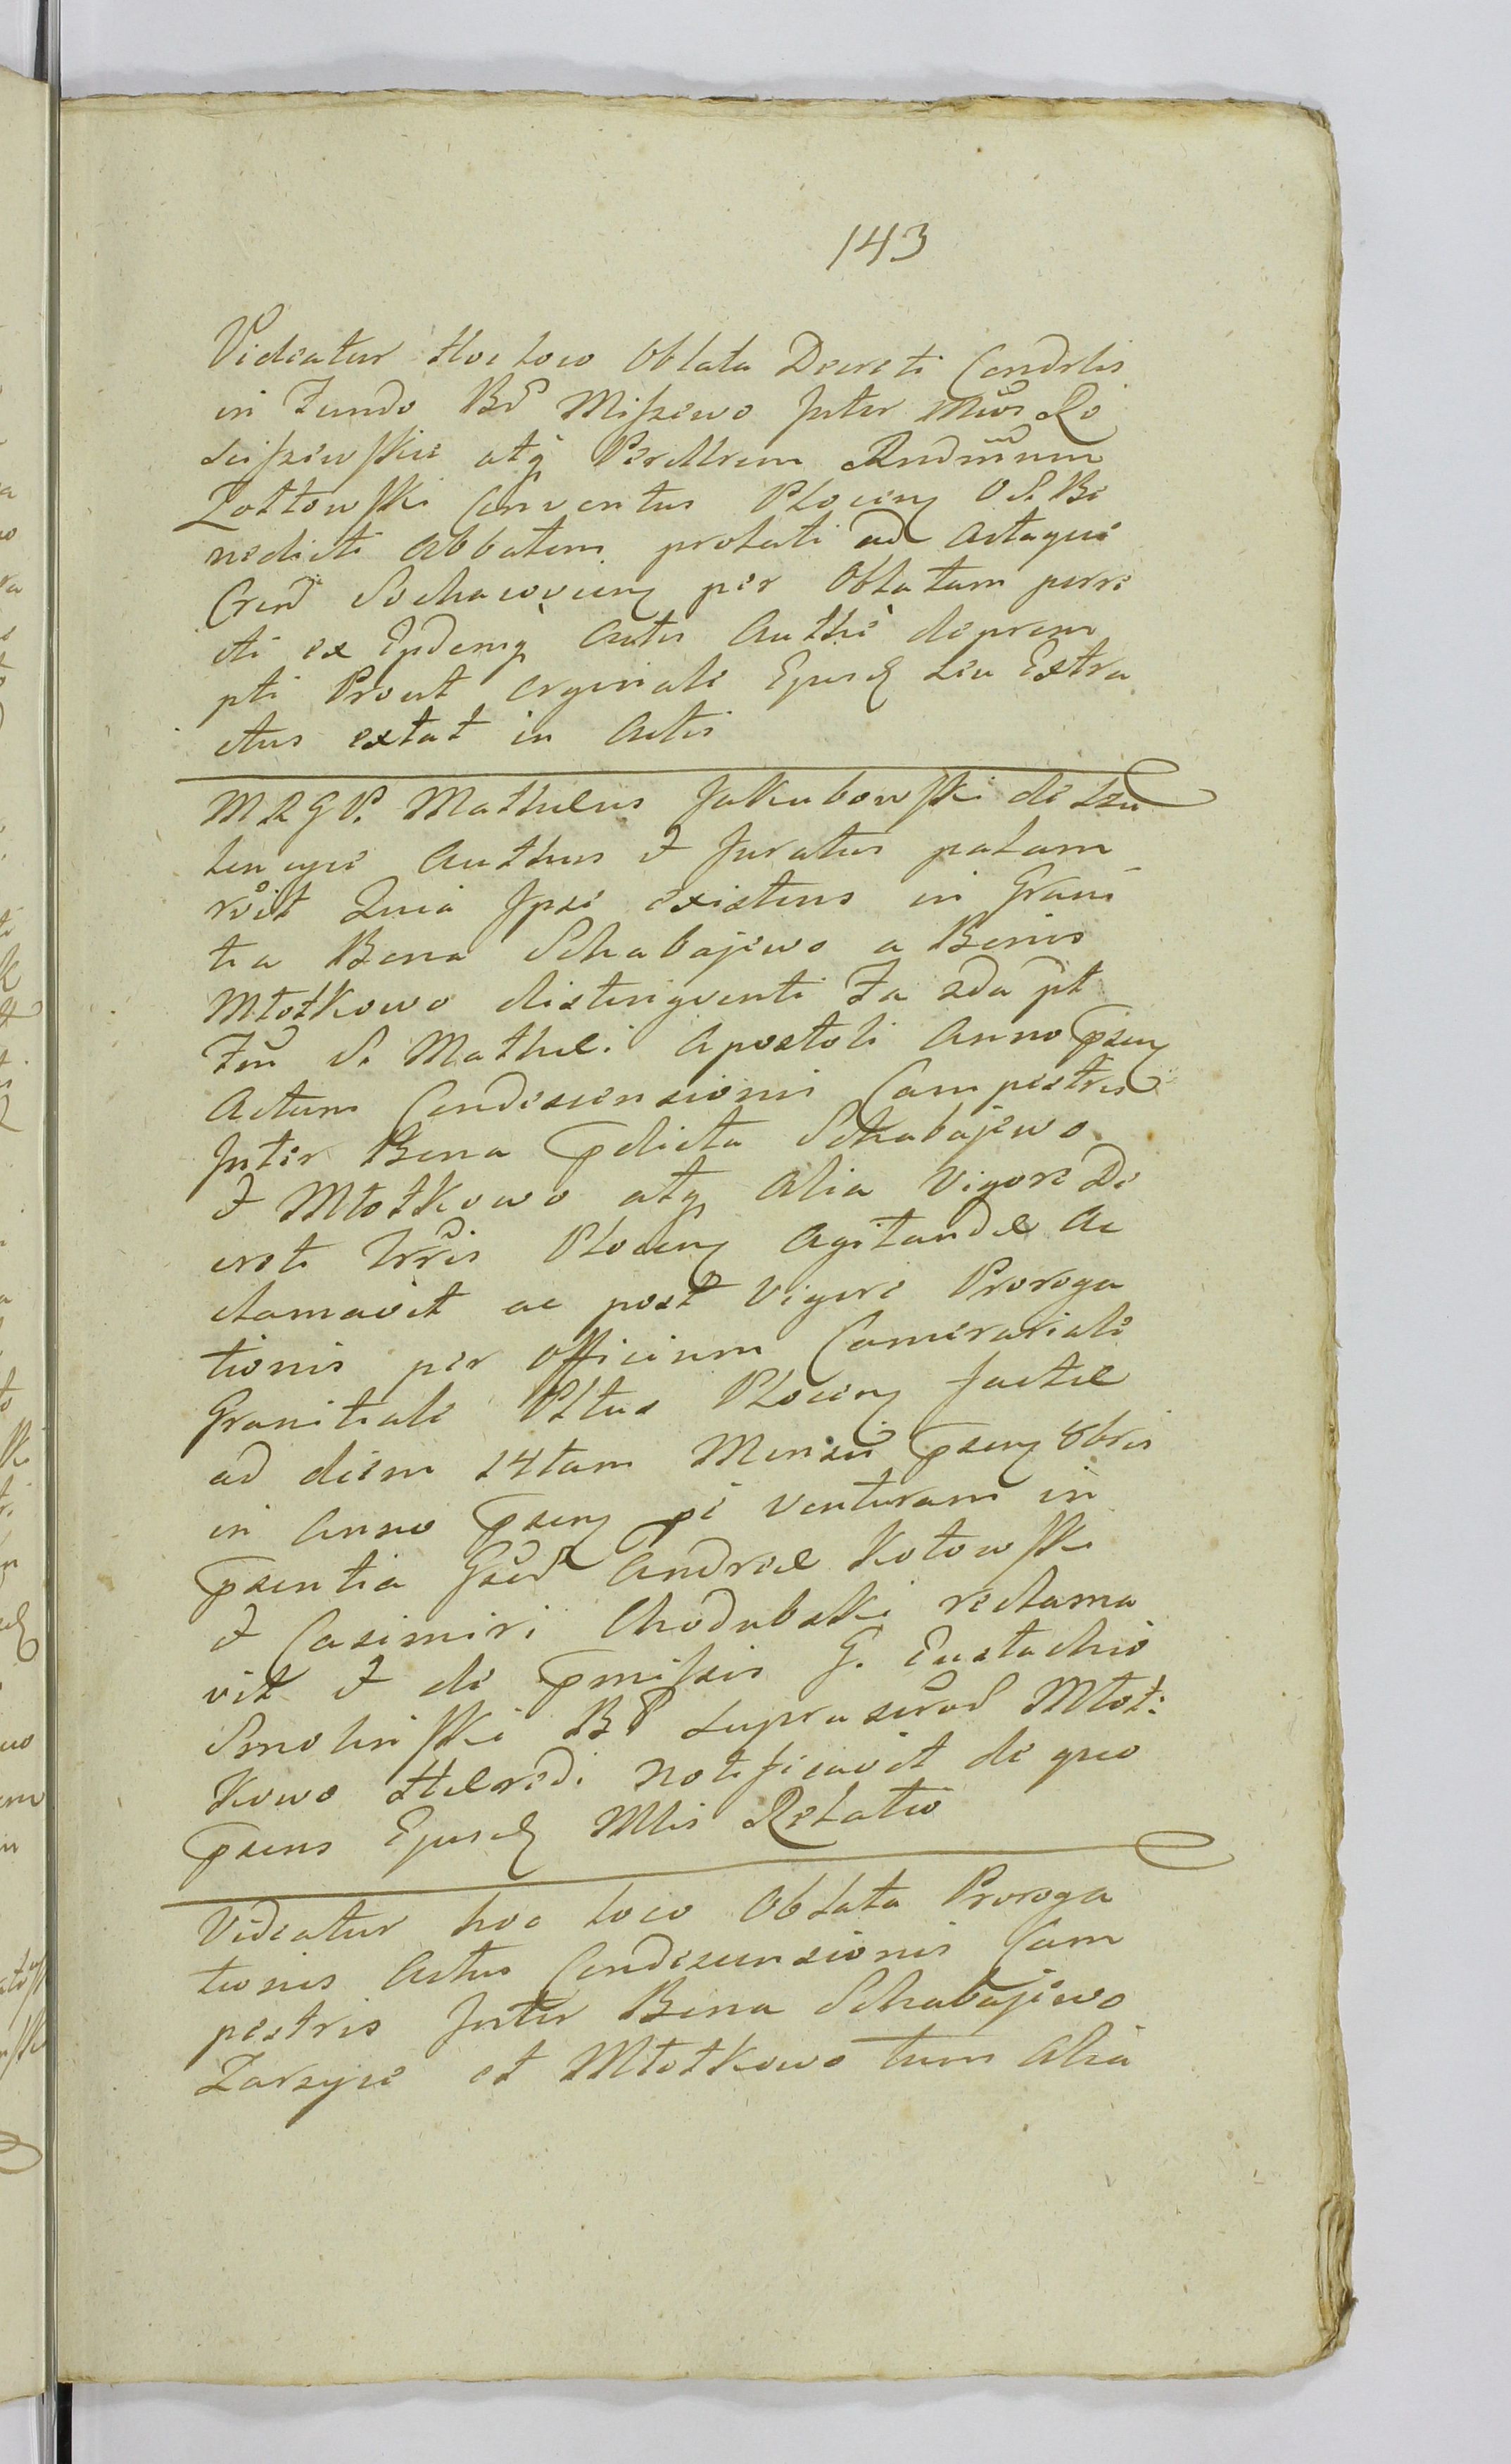 143
Videatur Hoc Loco Oblata Decreti Condrlis
in Fundo Bď Miszewo Inter Mŭos Ro
sciszewskie atq Per Illrem Rndmum
Zottowski Conventus Plocens O S. Be
nedicti Abbatem prolati ad Actaque
Crend Sochacoviens per Oblatam porre
cti ex Ejsdemq Actis Authe deprem
pti Prout Orginale Ejusd seu Extra
ctus extat in Actis
M R G V. Matheus Jakubowski de Szu
len cysi Authus et Juratus palam
rŏit Quia Ipse existens in Grani
tia Bona Schabajewo a Bonis
Młotkowo distingventi Fa 2da pt
Fm S. Mathei Apostoli Anno psens
Actum Condescensionis Campestris
Inter Bona pdicta Schabajewo
et Młotkowo atq Alia Vigore De
creti Plocens Agitandæ Ac
clamavit ac post Vigore Proroga
tionis per Officium Camerariale
Granitiale Pltus Plocens factæ
ad diem 14tam Mensis psens 8bris
in Anno psens pě venturam in
psentia Gsěd Andreæ Kotowski
et Casimiri Chodubski reclama
vit et de pmissis G. Eustachio
Smolinski B P suprascrad Młot:
kowo Hæredi notificavit de quo
psens Ejusd Mlis Relatio
Videatur hoc loco Oblata Proroga
tionis Actus Condescensionis Cam
pestris Inter Bona Schabajewo
Zarzyce et Młotkowo tum Alia